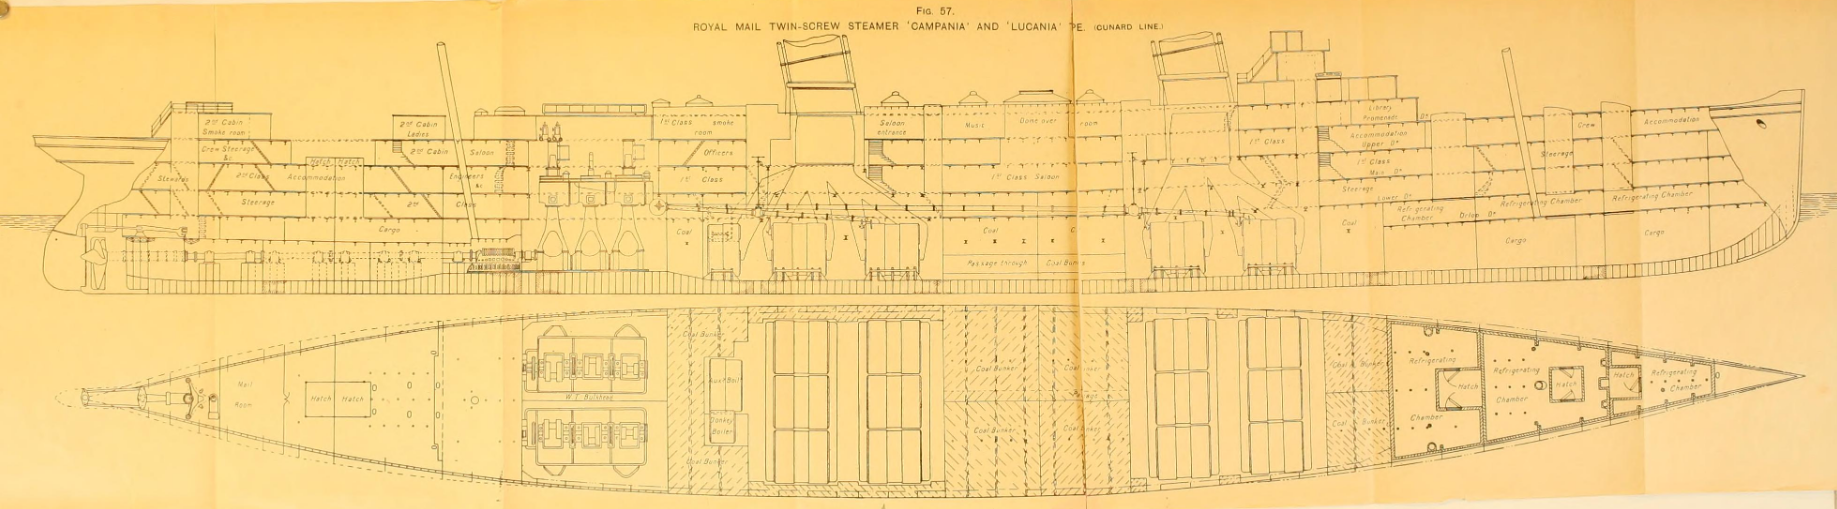 FIG. 57.
ROYAL MAIL TWIN-SCREW STEAMER 'CAMPANIA' AND 'LUCANIA' PE. (CUNARD LINE.)
2nd Cabin
Smoke room
Crew Steerage
&c
Stewards
2nd Class
Hatch Hatch
Accommodation
Steerage
Cargo
2nd Cabin
Ladies
2nd Cabin Saloon
Engineers
&c
2nd Class
1st Class smoke
room
Officers
1st Class
Coal
Saloon
entrance
Music Dome over room
1st Class Saloon
Coal
Passage through Coal Bunks
1st Class
Library
Promenade Dk
Accommodation
Upper Dk
1st Class
Main Dk
Steerage
Lower Dk
Refrigerating
Chamber
Orlop Dk
Coal
Crew Accommodation
Steerage
Refrigerating Chamber
Refrigerating Chamber
Cargo
Cargo
Mail
Room
Hatch Hatch
W.T. Bulkhead
Coal Bunker
Auxy Boil
Donkey
Boiler
Coal Bunker
Coal Bunker
Coal Bunker
Coal Bunker
Coal Bunker
Coal Bunker
Refrigerating
Chamber
Hatch
Refrigerating
Chamber
Hatch
Hatch
Refrigerating
Chamber